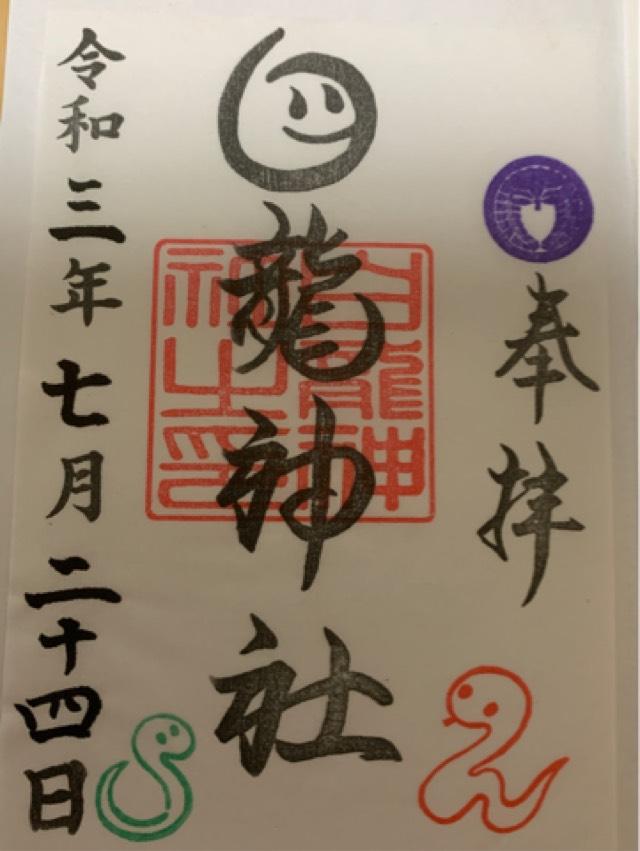 奉拝
白龍神社
白龍神社之印
令和三年七月二十四日